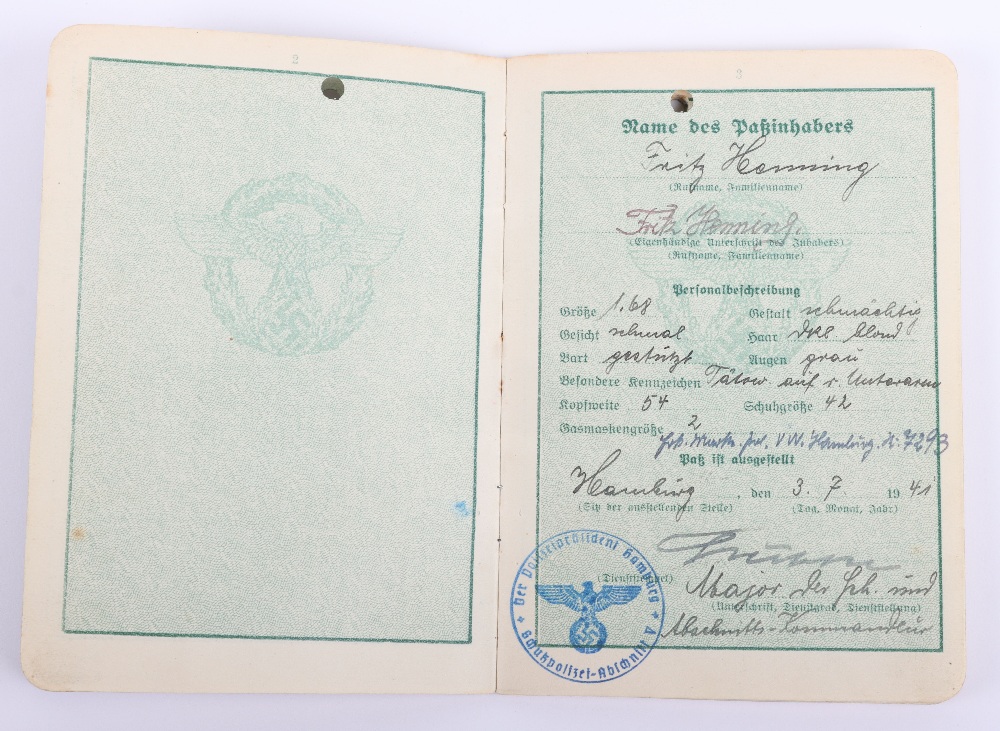 2
3
Name des Paßinhabers
Fritz Henning
(Rufname, Familienname)
Fritz Henning.
(Eigenhändige Unterschrift des Inhabers)
(Rufname, Familienname)
Personalbeschreibung
Größe 1.68 Gestalt schmächtig
Gesicht schmal Haar dkl blond
Bart gestutzt Augen grau
Besondere Kennzeichen Tätow. auf r. Unterarm
Kopfweite 54 Schuhgröße 42
Gasmaskengröße 2
Hamburg. N. 7293
Paß ist ausgestellt
Hamburg, den 3. 7. 1941
(Sitz der ausstellenden Stelle) (Tag, Monat, Jahr)
(Dienststempel) Major der Sch. und
(Unterschrift, Dienstgrad, Dienststellung)
Abschnitts-Kommandeur
Der Polizeipräsident Hamburg
Schutzpolizei-Abschnitt